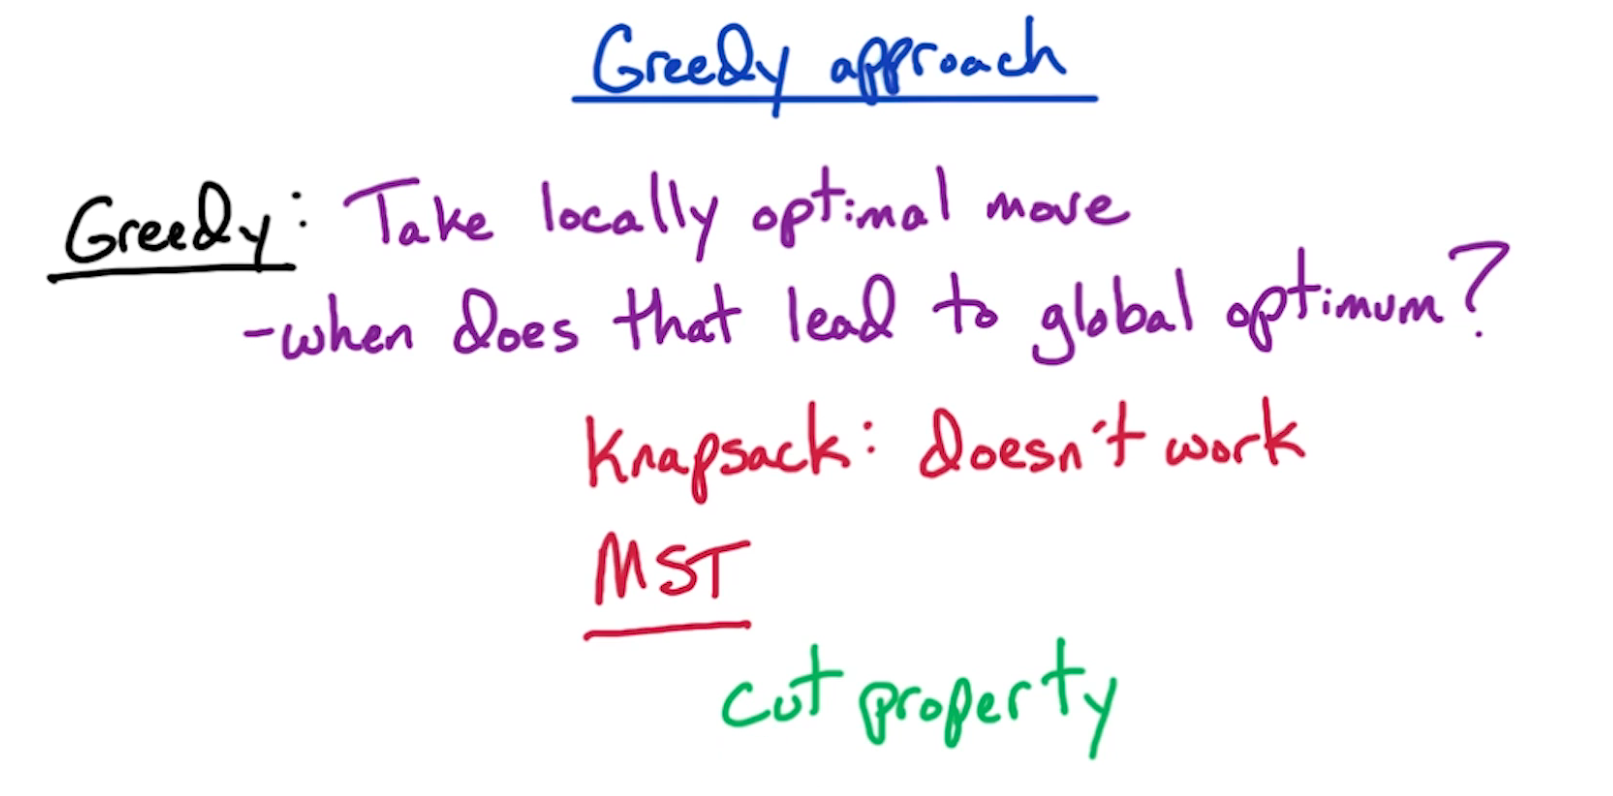 Greedy approach
Greedy: Take locally optimal move
-when does that lead to global optimum?
Knapsack: doesn't work
MST
cut property